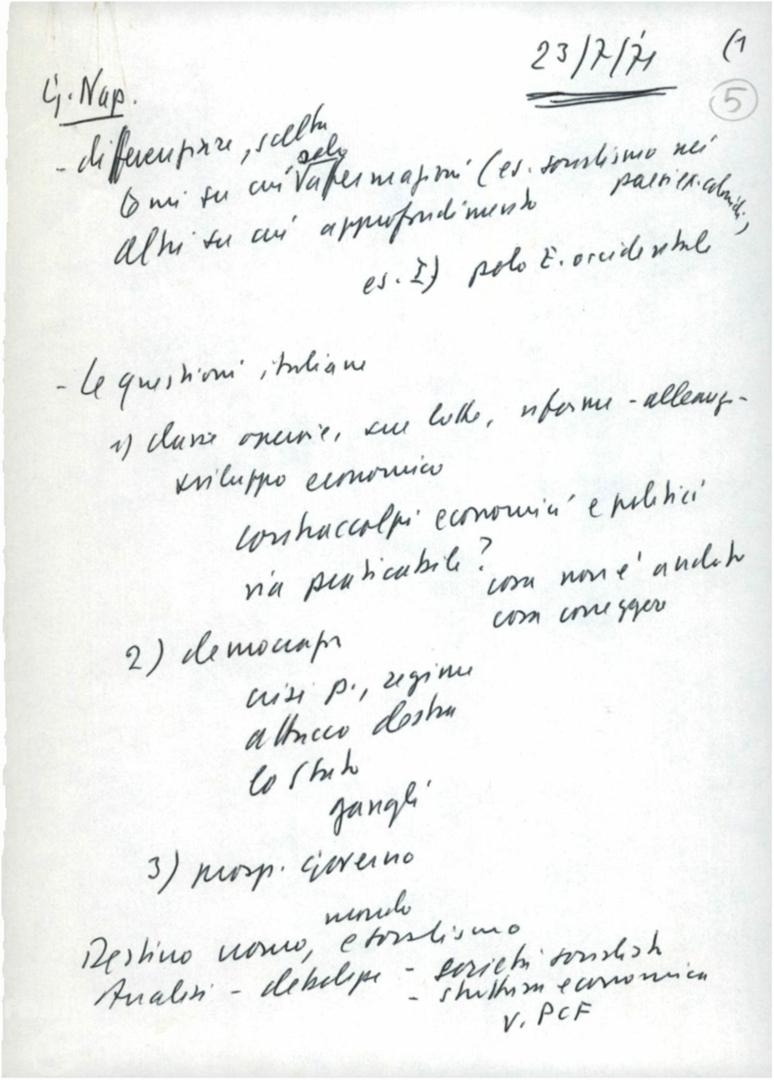 23/7/71 (1
5
G. Nap.
- differenziare, scelta
temi su cui solo affermazioni (es. socialismo nei
paesi ex coloniali,
altri su cui approfondimento
es. I) polo E. occidentale
- Le questioni italiane
1) classe operaia, sue lotte, riforme - alleanze -
sviluppo economico
contraccolpi economici e politici
via praticabile?
cosa non è andato
cosa correggere
2) democrazia
crisi p., regime
attacco destra
lo Stato
gangli
3) prosp. Governo
Destino uomo, mondo e socialismo
Analisi - debolezze - società socialista
- struttura economica
v. PCF